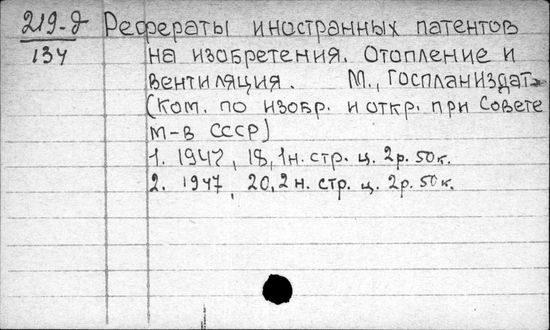 219-д Рефераты иностранных патентов
134 на изобретения. Отопление и
вентиляция. М., Госпланиздат
(Ком. по изобр. и откр. при Совете
м-в СССР)
1. 1947, 18, 1 н. стр. ц. 2р. 50к.
2. 1947, 20, 2 н. стр. ц. 2р. 50к.